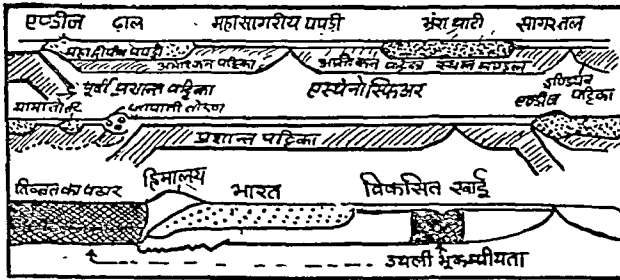 एण्डीज ढ़ाल महासागरीय पपड़ी भ्रंश घाटी सागरतल
महाद्वीपीय पपड़ी अमेरिकन पट्टिका अफ्रीकन पट्टिका स्थल मण्डल
पूर्वी प्रशान्त पट्टिका एस्थेनोस्फिअर एण्डीज इण्डियन पट्टिका
तोरण
प्रशान्त पट्टिका
तिब्बत का पठार हिमालय भारत विकसित खाई
उथली भूकम्पीयता